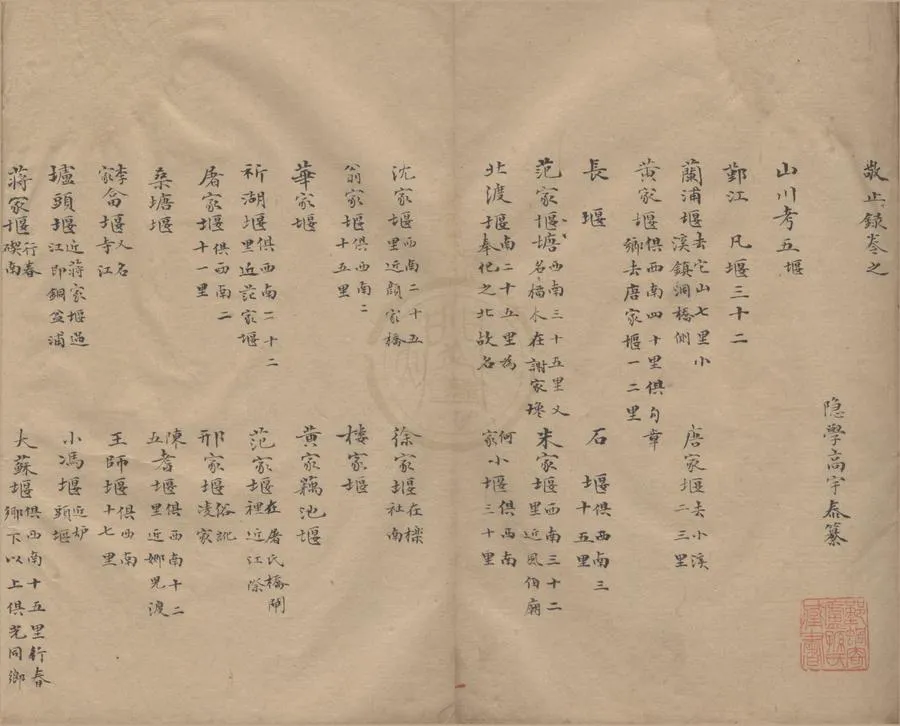 敬止錄卷之
隐學高宇泰纂
山川考五堰
鄞江 凡堰三十二
蘭浦堰去它山七里小溪鎮洞橋側 唐家堰去小溪二三里
黄家堰俱西南四十里俱句章鄉去唐家堰一二里
長堰 石堰俱西南三十五里
范家堰塘西南三十五里又名橋木在謝家 朱家堰西南三十二里近風伯廟
北渡堰南二十五里為奉化之北故名 何家小堰俱西南三十里
沈家堰西南二十五里近顔家橋 徐家堰在櫟社南
翁家堰俱西南二十五里 楼家堰
華家堰 黄家藕池堰
祈湖堰俱西南二十二里近范家堰 范家堰在屠氏橋閘裡近江祭
屠家堰俱西南二十一里 邢家堰俗訛凌家
桑塘堰 陳耆堰俱西南十二五里近娜兒渡
李家畣堰又名寺江 王師堰俱西南十七里
壚頭堰近蔣家堰過江即銅盆浦 小馮堰近炉頭堰
蔣家堰行春碶南 大蘇堰俱西南十五里行春鄉下以上俱光同鄉